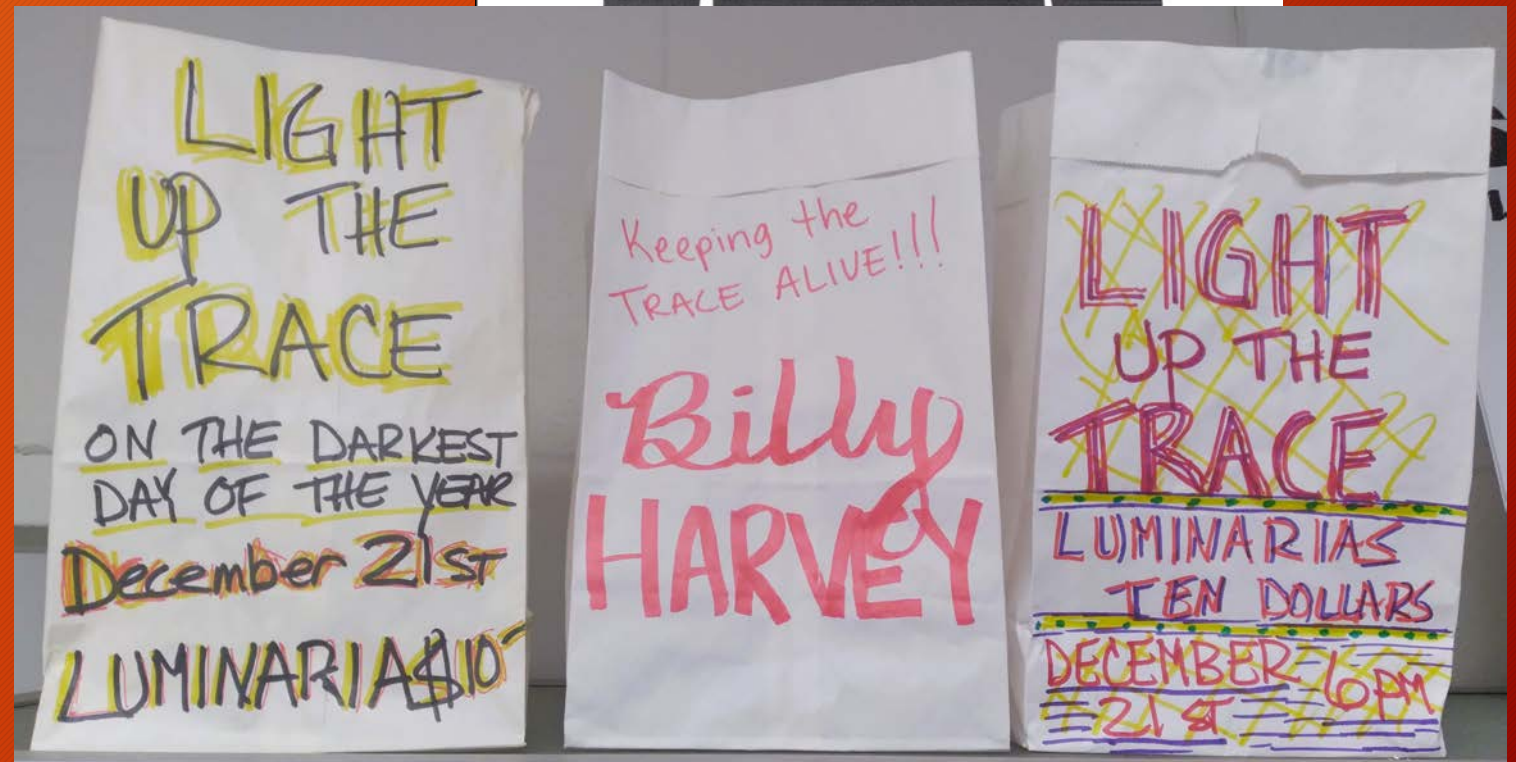 LIGHT
UP THE
TRACE
ON THE DARKEST
DAY OF THE YEAR
December 21ST
LUMINARIA $10
Keeping the
TRACE ALIVE!!!
Billy
HARVEY
LIGHT
UP THE
TRACE
LUMINARIAS
TEN DOLLARS
DECEMBER 6PM
21ST